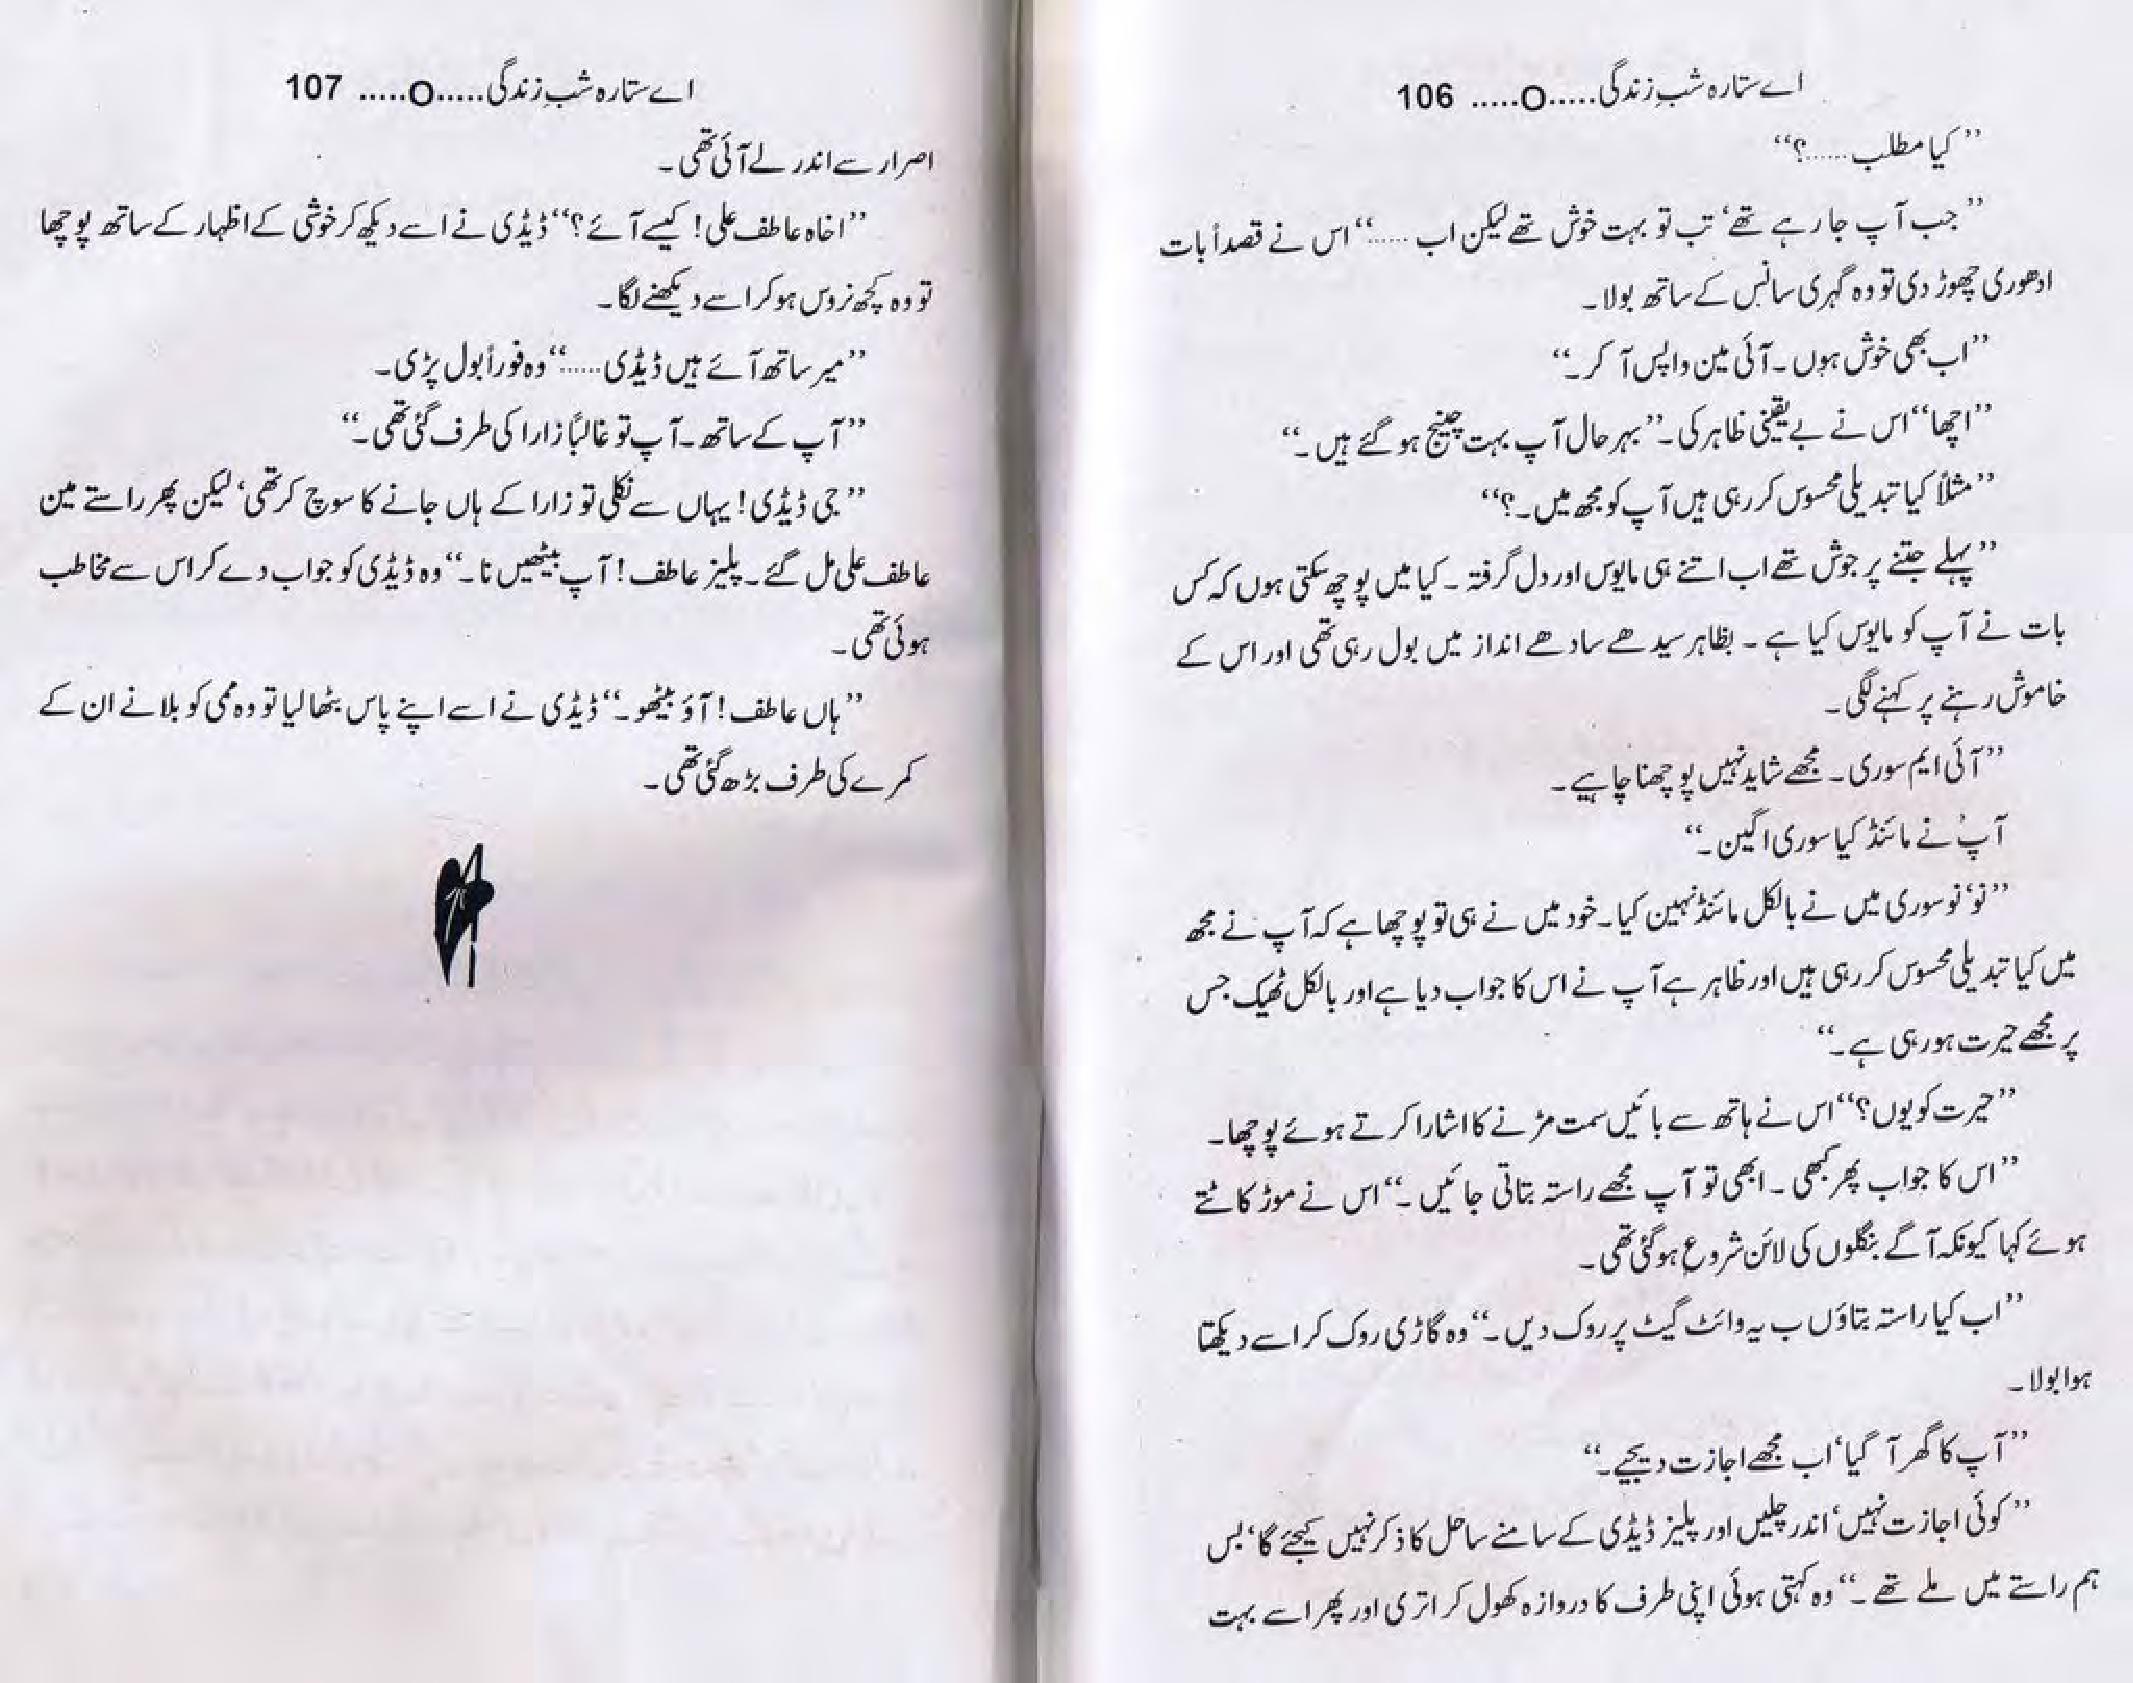 اے ستارہ شبِ زندگی.....O..... 106
”کیا مطلب......؟“
”جب آپ جا رہے تھے‘ تب تو بہت خوش تھے لیکن اب ......“ اس نے قصداً بات
ادھوری چھوڑ دی تو وہ گہری سانس کے ساتھ بولا۔
”اب بھی خوش ہوں۔ آئی مین واپس آ کر۔“
”اچھا“ اس نے بے یقینی ظاہر کی۔ ”بہر حال آپ بہت چینج ہو گئے ہیں۔“
”مثلاً کیا تبدیلی محسوس کر رہی ہیں آپ کو مجھ میں۔؟“
”پہلے جتنے پر جوش تھے اب اتنے ہی مایوس اور دل گرفتہ۔ کیا میں پوچھ سکتی ہوں کہ کس
بات نے آپ کو مایوس کیا ہے۔ بظاہر سیدھے سادھے انداز میں بول رہی تھی اور اس کے
خاموش رہنے پر کہنے لگی۔
”آئی ایم سوری۔ مجھے شاید نہیں پوچھنا چاہیے۔
آپ نے مائنڈ کیا سوری اگین۔“
”نو‘ نو سوری میں نے بالکل مائنڈ نہین کیا۔ خود میں نے ہی تو پوچھا ہے کہ آپ نے مجھ
میں کیا تبدیلی محسوس کر رہی ہیں اور ظاہر ہے آپ نے اس کا جواب دیا ہے اور بالکل ٹھیک جس
پر مجھے حیرت ہو رہی ہے۔“
”حیرت کویوں؟“ اس نے ہاتھ سے بائیں سمت مڑنے کا اشارا کرتے ہوئے پوچھا۔
”اس کا جواب پھر کبھی۔ ابھی تو آپ مجھے راستہ بتاتی جائیں۔“ اس نے موڑ کاٹتے
ہوئے کہا کیونکہ آگے بنگلوں کی لائن شروع ہو گئی تھی۔
”اب کیا راستہ بتاؤں ب یہ وائٹ گیٹ پر روک دیں۔“ وہ گاڑی روک کر اسے دیکھتا
ہوا بولا۔
”آپ کا گھر آ گیا‘ اب مجھے اجازت دیجیے۔“
”کوئی اجازت نہیں‘ اندر چلیں اور پلیز ڈیڈی کے سامنے ساحل کا ذکر نہیں کیجئے گا‘ بس
ہم راستے میں ملے تھے۔“ وہ کہتی ہوئی اپنی طرف کا دروازہ کھول کر اتری اور پھر اسے بہت
اے ستارہ شبِ زندگی.....O..... 107
اصرار سے اندر لے آئی تھی۔
”اخاہ عاطف علی! کیسے آئے؟“ ڈیڈی نے اسے دیکھ کر خوشی کے اظہار کے ساتھ پوچھا
تو وہ کچھ نروس ہو کر اسے دیکھنے لگا۔
”میر ساتھ آئے ہیں ڈیڈی......“ وہ فوراً بول پڑی۔
”آپ کے ساتھ۔ آپ تو غالباً زارا کی طرف گئی تھی۔“
”جی ڈیڈی! یہاں سے نکلی تو زارا کے ہاں جانے کا سوچ کر تھی‘ لیکن پھر راستے مین
عاطف علی مل گئے۔ پلیز عاطف! آپ بیٹھیں نا۔“ وہ ڈیڈی کو جواب دے کر اس سے مخاطب
ہوئی تھی۔
”ہاں عاطف! آؤ بیٹھو۔“ ڈیڈی نے اسے اپنے پاس بٹھا لیا تو وہ ممی کو بلانے ان کے
کمرے کی طرف بڑھ گئی تھی۔